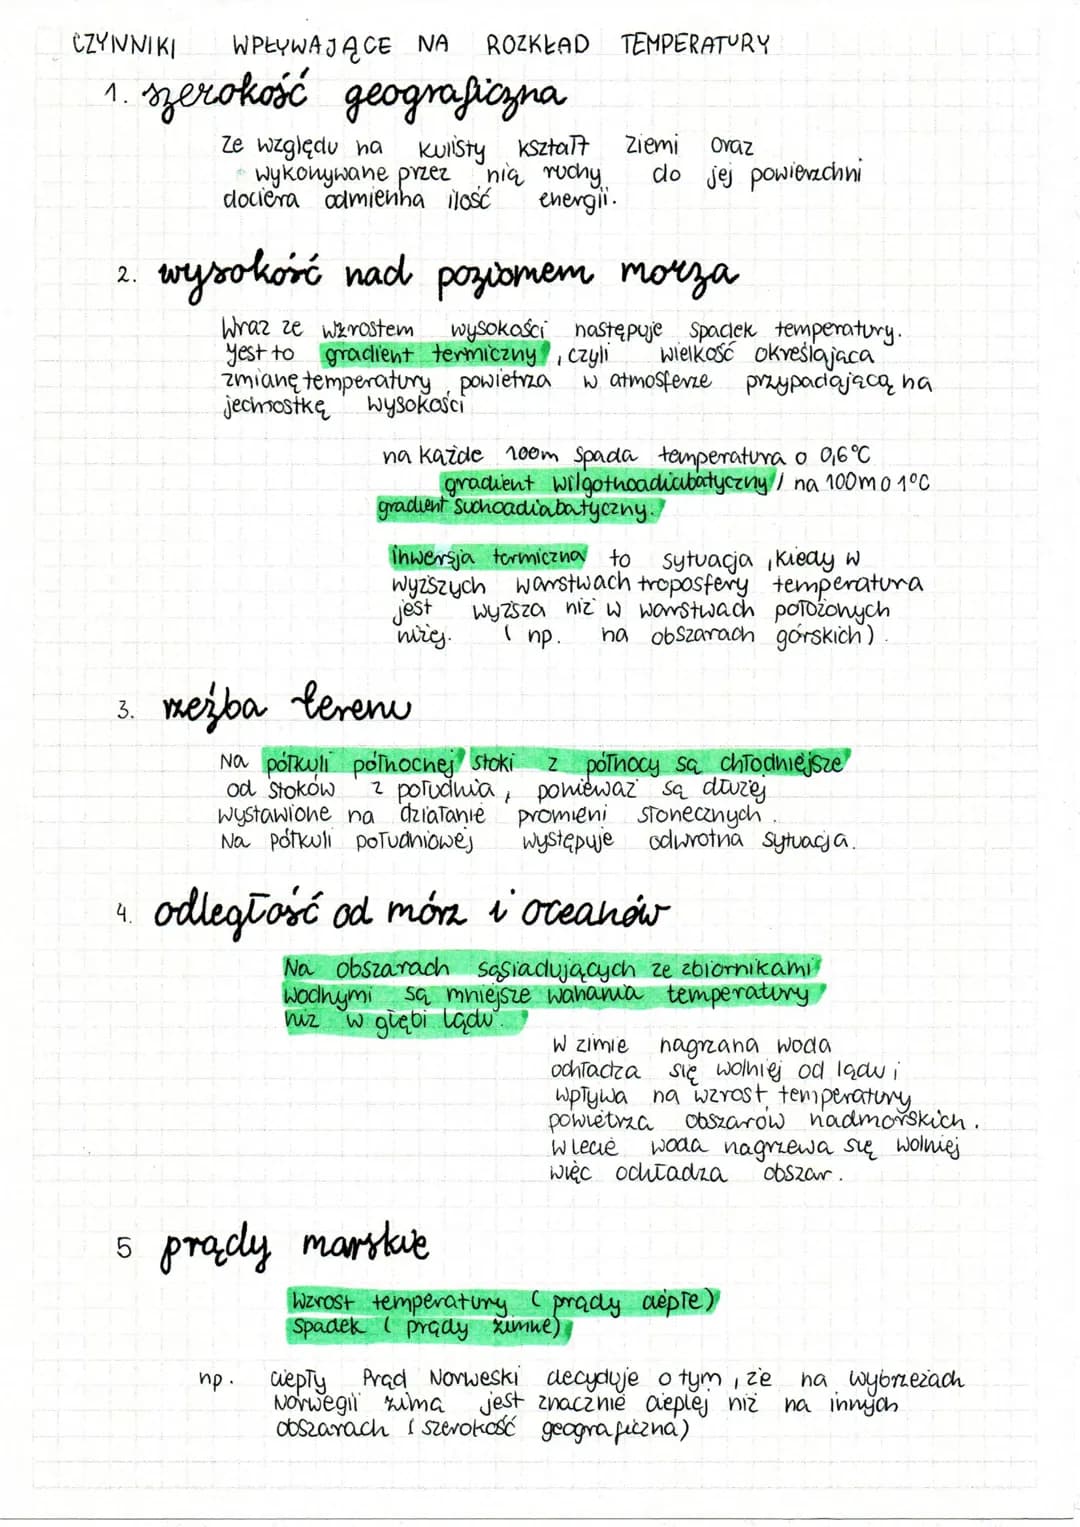 CZYNNIKI WPŁYWAJĄCE NA ROZKŁAD TEMPERATURY
1. szerokość geograficzna
Ze względu na kulisty kształt Ziemi oraz
wykonywane przez nią ruchy do jej powierzchni
dociera odmienna ilość energii.
2. wysokość nad poziomem morza
Wraz ze wzrostem wysokości następuje spadek temperatury.
Jest to gradient termiczny, czyli wielkość określająca
zmianę temperatury powietrza w atmosferze przypadającą na
jednostkę wysokości
na każde 100m spada temperatura o 0,6°C
gradient wilgotnoadiabatyczny / na 100m o 1°C
gradient suchoadiabatyczny.
inwersja termiczna to sytuacja, kiedy w
wyższych warstwach troposfery temperatura
jest wyższa niż w warstwach położonych
niżej. (np. na obszarach górskich).
3. rzeźba terenu
Na półkuli północnej stoki z północy są chłodniejsze
od stoków z południa, ponieważ są dłużej
wystawione na działanie promieni słonecznych.
Na półkuli południowej występuje odwrotna sytuacja.
4. odległość od mórz i oceanów
Na obszarach sąsiadujących ze zbiornikami
wodnymi są mniejsze wahania temperatury
niż w głębi lądu.
W zimie nagrzana woda
ochładza się wolniej od lądu i
wpływa na wzrost temperatury
powietrza obszarów nadmorskich.
W lecie woda nagrzewa się wolniej
więc ochładza obszar.
5 prądy morskie
Wzrost temperatury (prądy ciepłe)
Spadek (prądy zimne)
np. ciepły Prąd Norweski decyduje o tym, że na wybrzeżach
Norwegii zima jest znacznie cieplej niż na innych
obszarach (szerokość geograficzna)